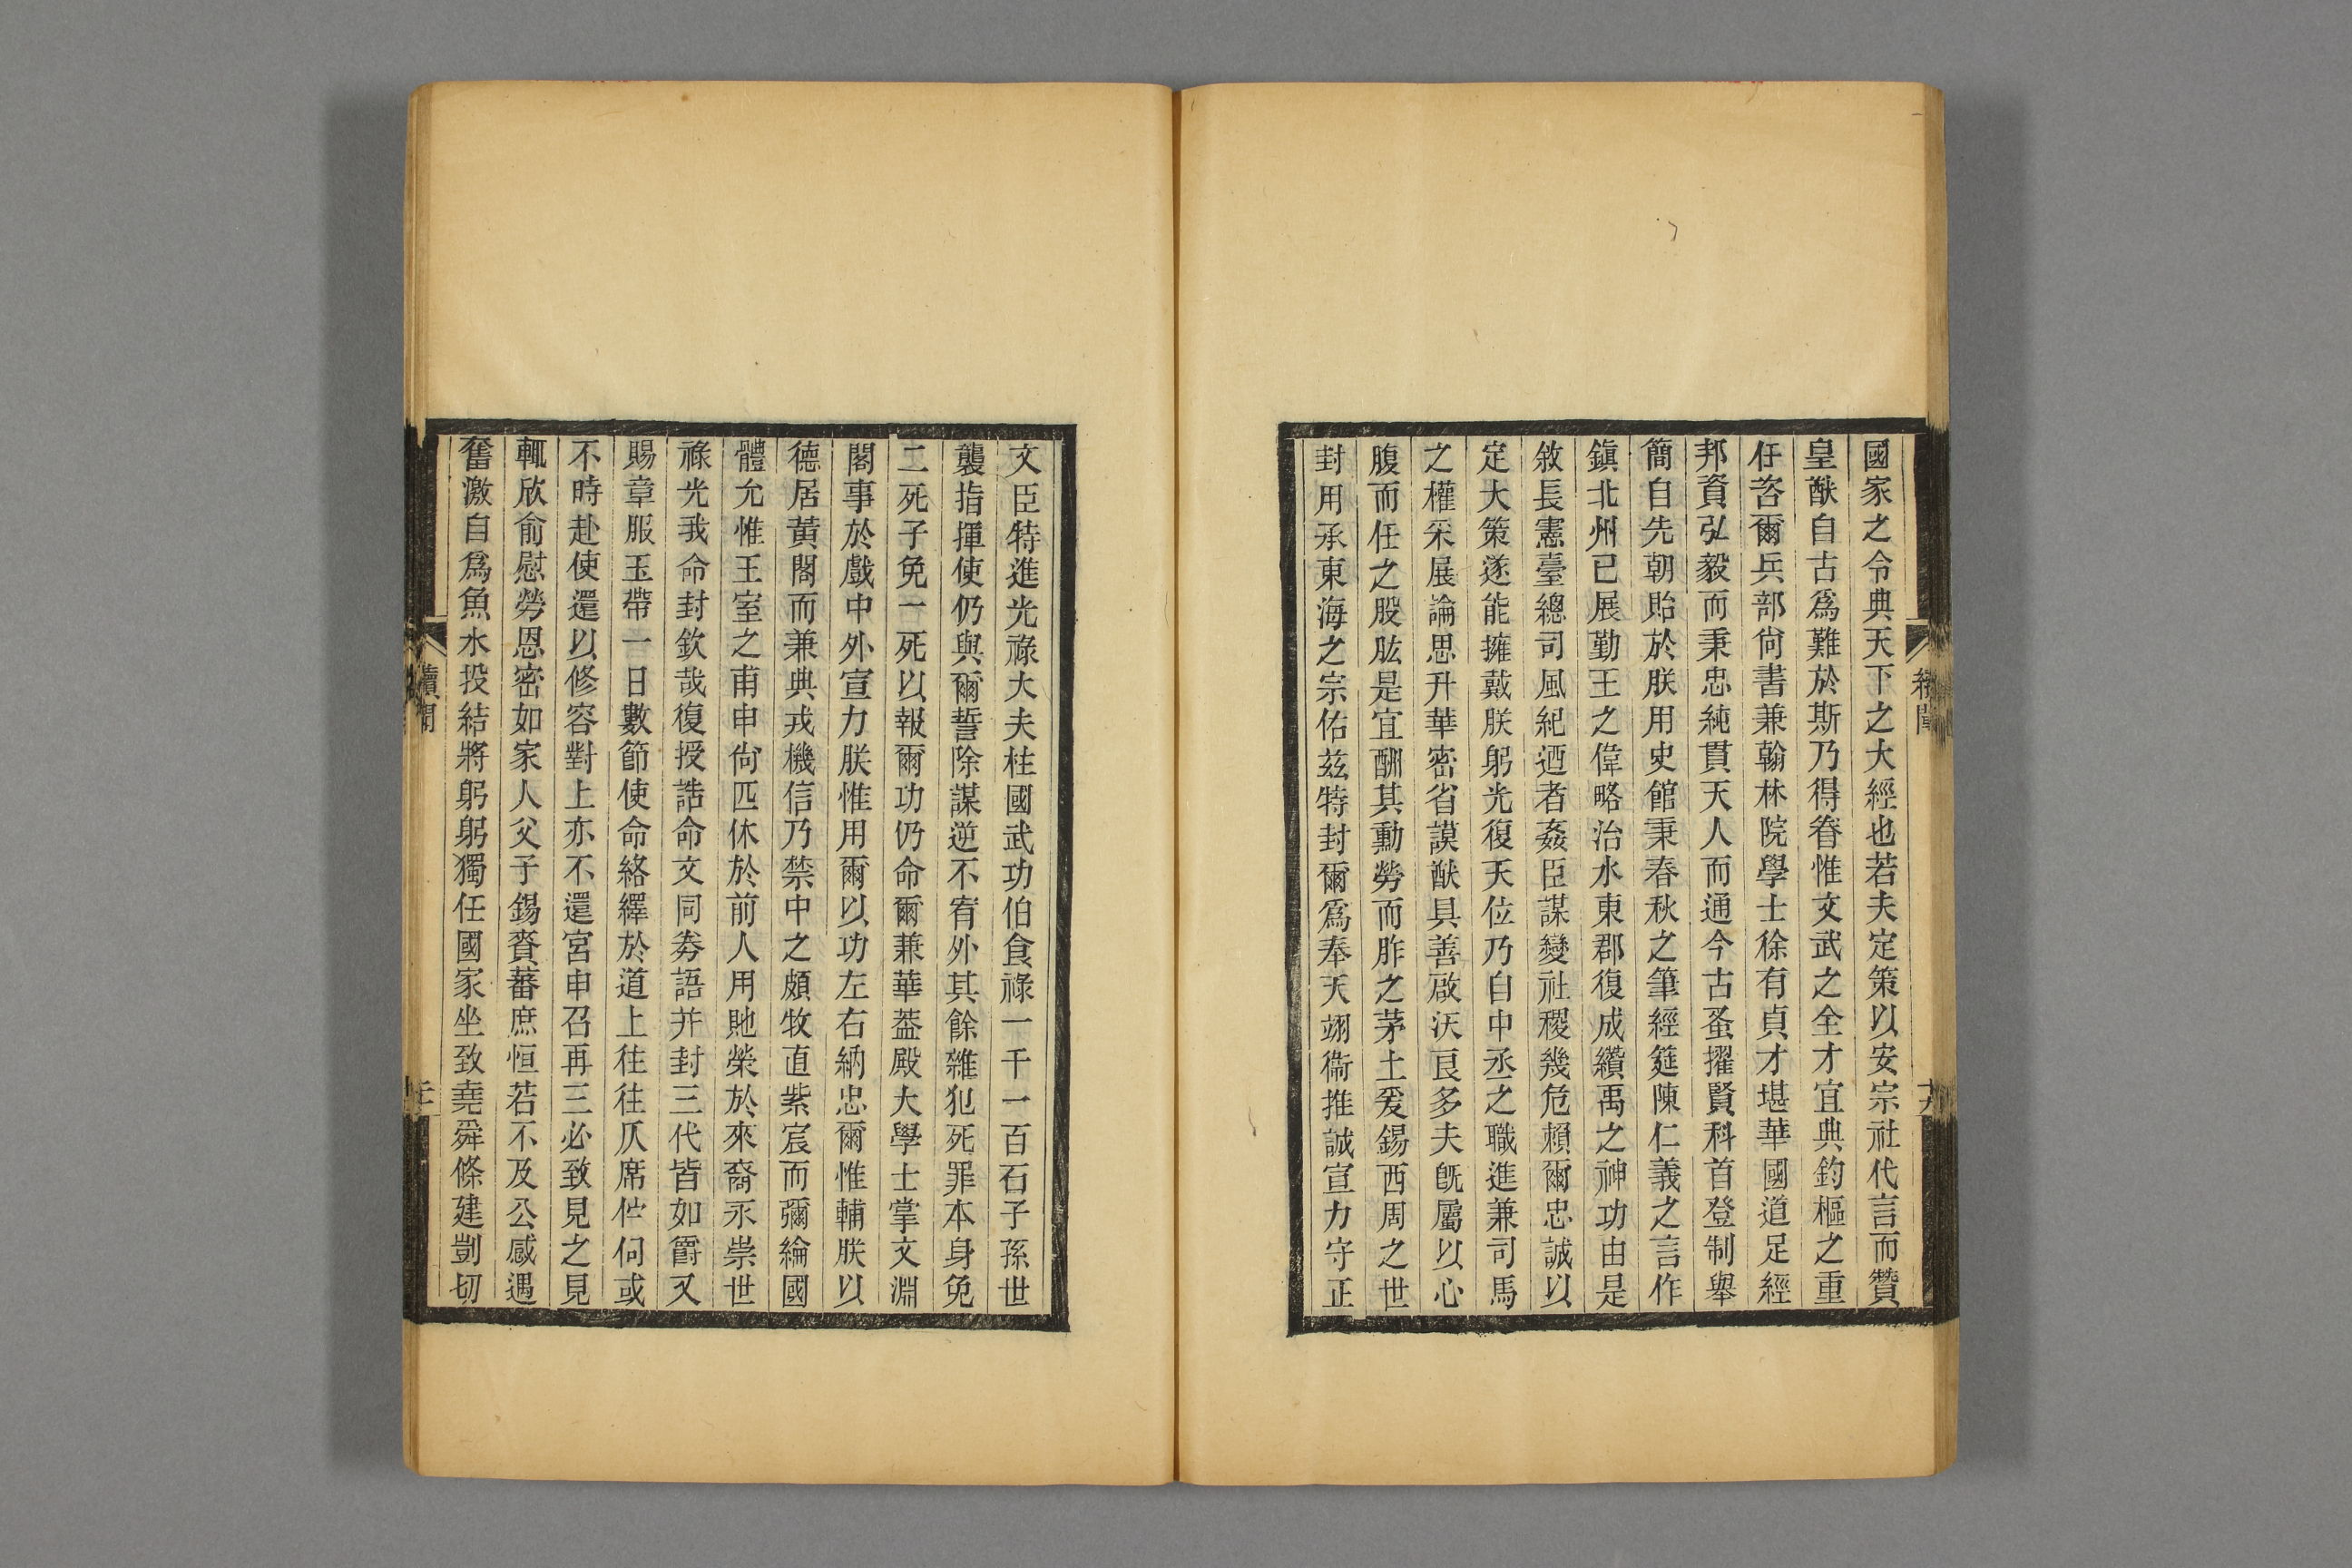 國家之令典天下之大經也若夫定策以安宗社代言而贊
皇猷自古爲難於斯乃得眷惟文武之全才宜典鈞樞之重
任咨爾兵部尙書兼翰林院學士徐有貞才堪華國道足經
邦資弘毅而秉忠純貫天人而通今古蚤擢賢科首登制舉
簡自先朝貽於朕用史館秉春秋之筆經筵陳仁義之言作
鎭北州已展勤王之偉略治水東郡復成纘禹之神功由是
敘長憲臺總司風紀迺者姦臣謀變社稷幾危賴爾忠誠以
定大策遂能擁戴朕躬光復天位乃自中丞之職進兼司馬
之權采展論思升華密省謨猷具善啟沃良多夫旣屬以心
腹而任之股肱是宜酬其勳勞而胙之茅土爰錫西周之世
封用承東海之宗佑茲特封爾爲奉天翊衞推誠宣力守正
文臣特進光祿大夫柱國武功伯食祿一千一百石子孫世
襲指揮使仍與爾誓除謀逆不宥外其餘雜犯死罪本身免
二死子免一死以報爾功仍命爾兼華葢殿大學士掌文淵
閣事於戲中外宣力朕惟用爾以功左右納忠爾惟輔朕以
德居黃閣而兼典戎機信乃禁中之頗牧直紫宸而彌綸國
體允惟王室之甫申尙匹休於前人用貤榮於來裔永崇世
祿光我命封欽哉復授誥命文同劵語并封三代皆如爵又
賜章服玉帶一日數節使命絡繹於道上往往仄席伫伺或
不時赴使還以修容對上亦不還宮申召再三必致見之見
輒欣俞慰勞恩密如家人父子錫賚蕃庶恒若不及公感遇
奮激自爲魚水投結將躬躬獨任國家坐致堯舜條建剴切
續聞